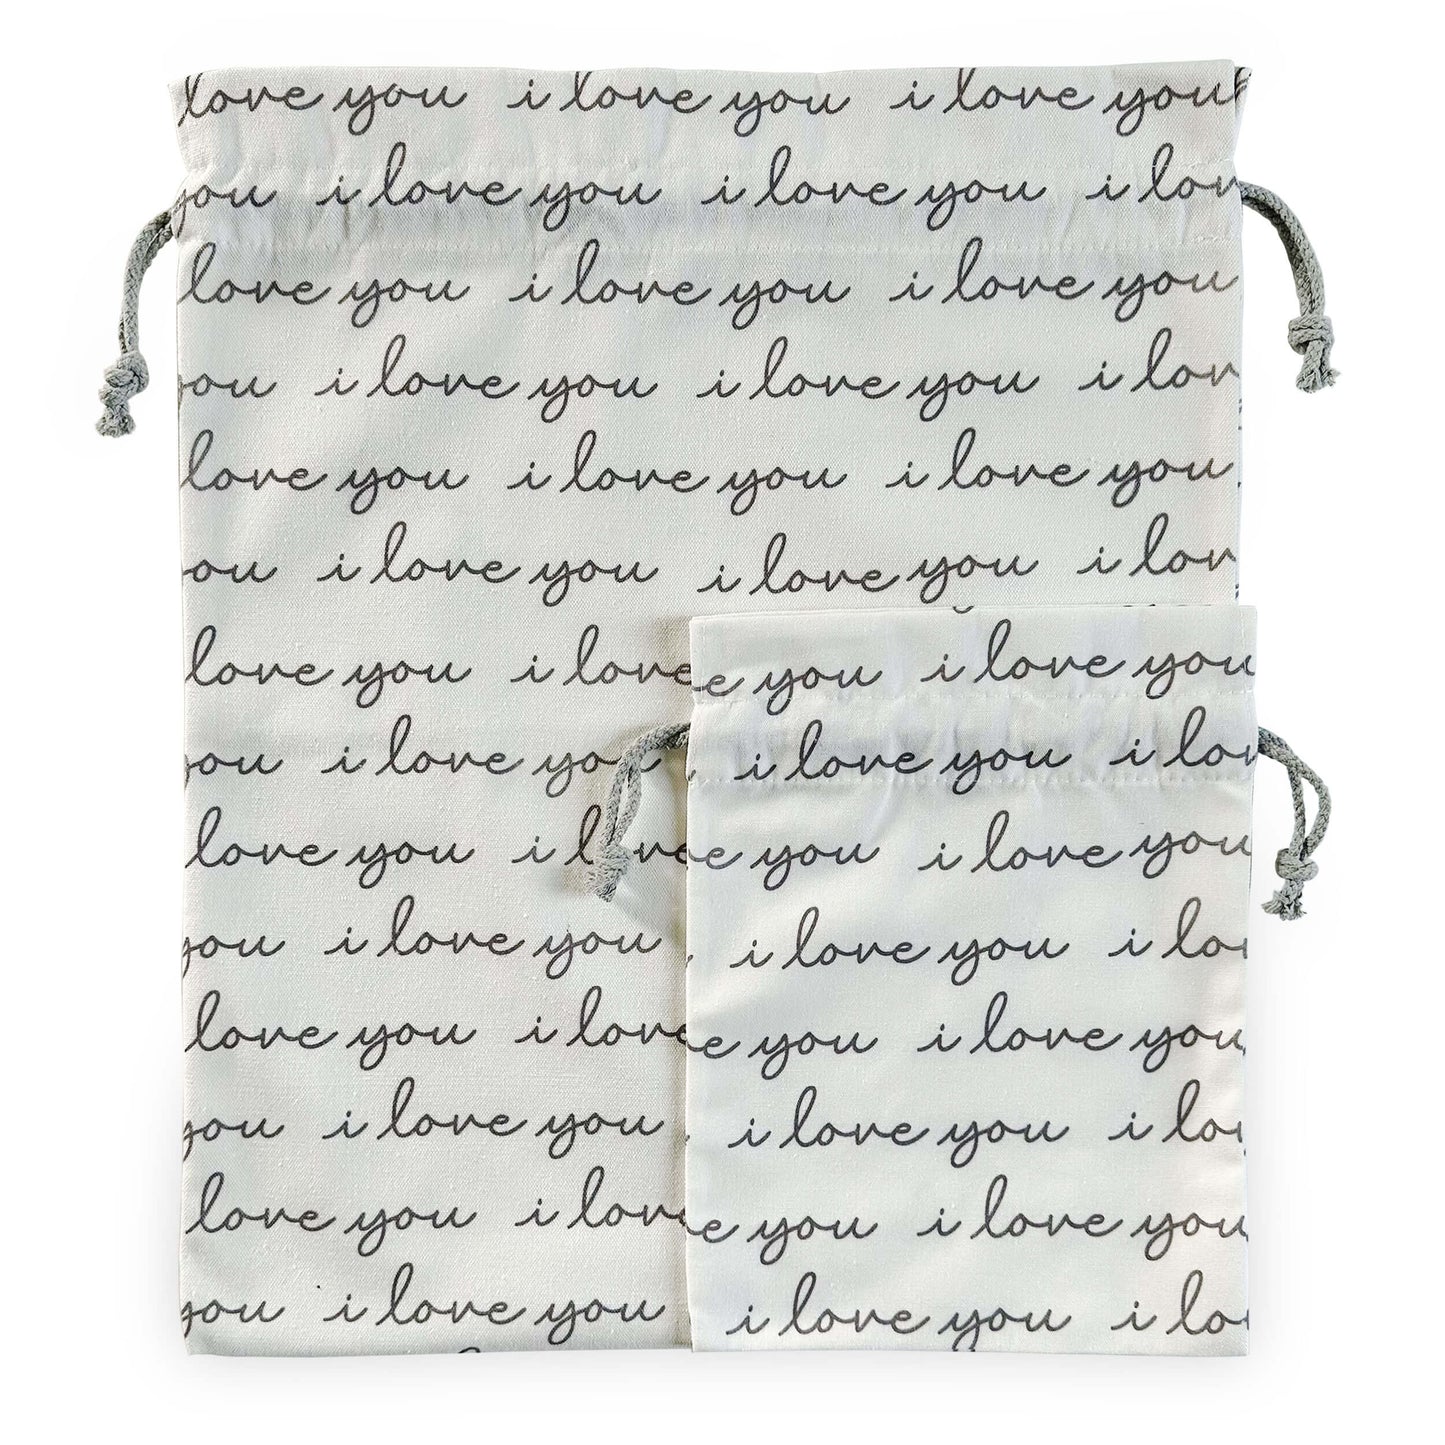 love you i love you i love you
you i love you i love you i lov
love you i love you i love you
you i love you i love you i lov
love you i love you i love you
ou i love you i love you i lov
love you i love
e you i love you
you i love you
i love you i lov
love you i love
e you i love you
you i love you
i love you i lo
love you i love
e you i love you
you i love you
i love you i lo
love you i lov
e you i love you
you i love you
i love you i lo